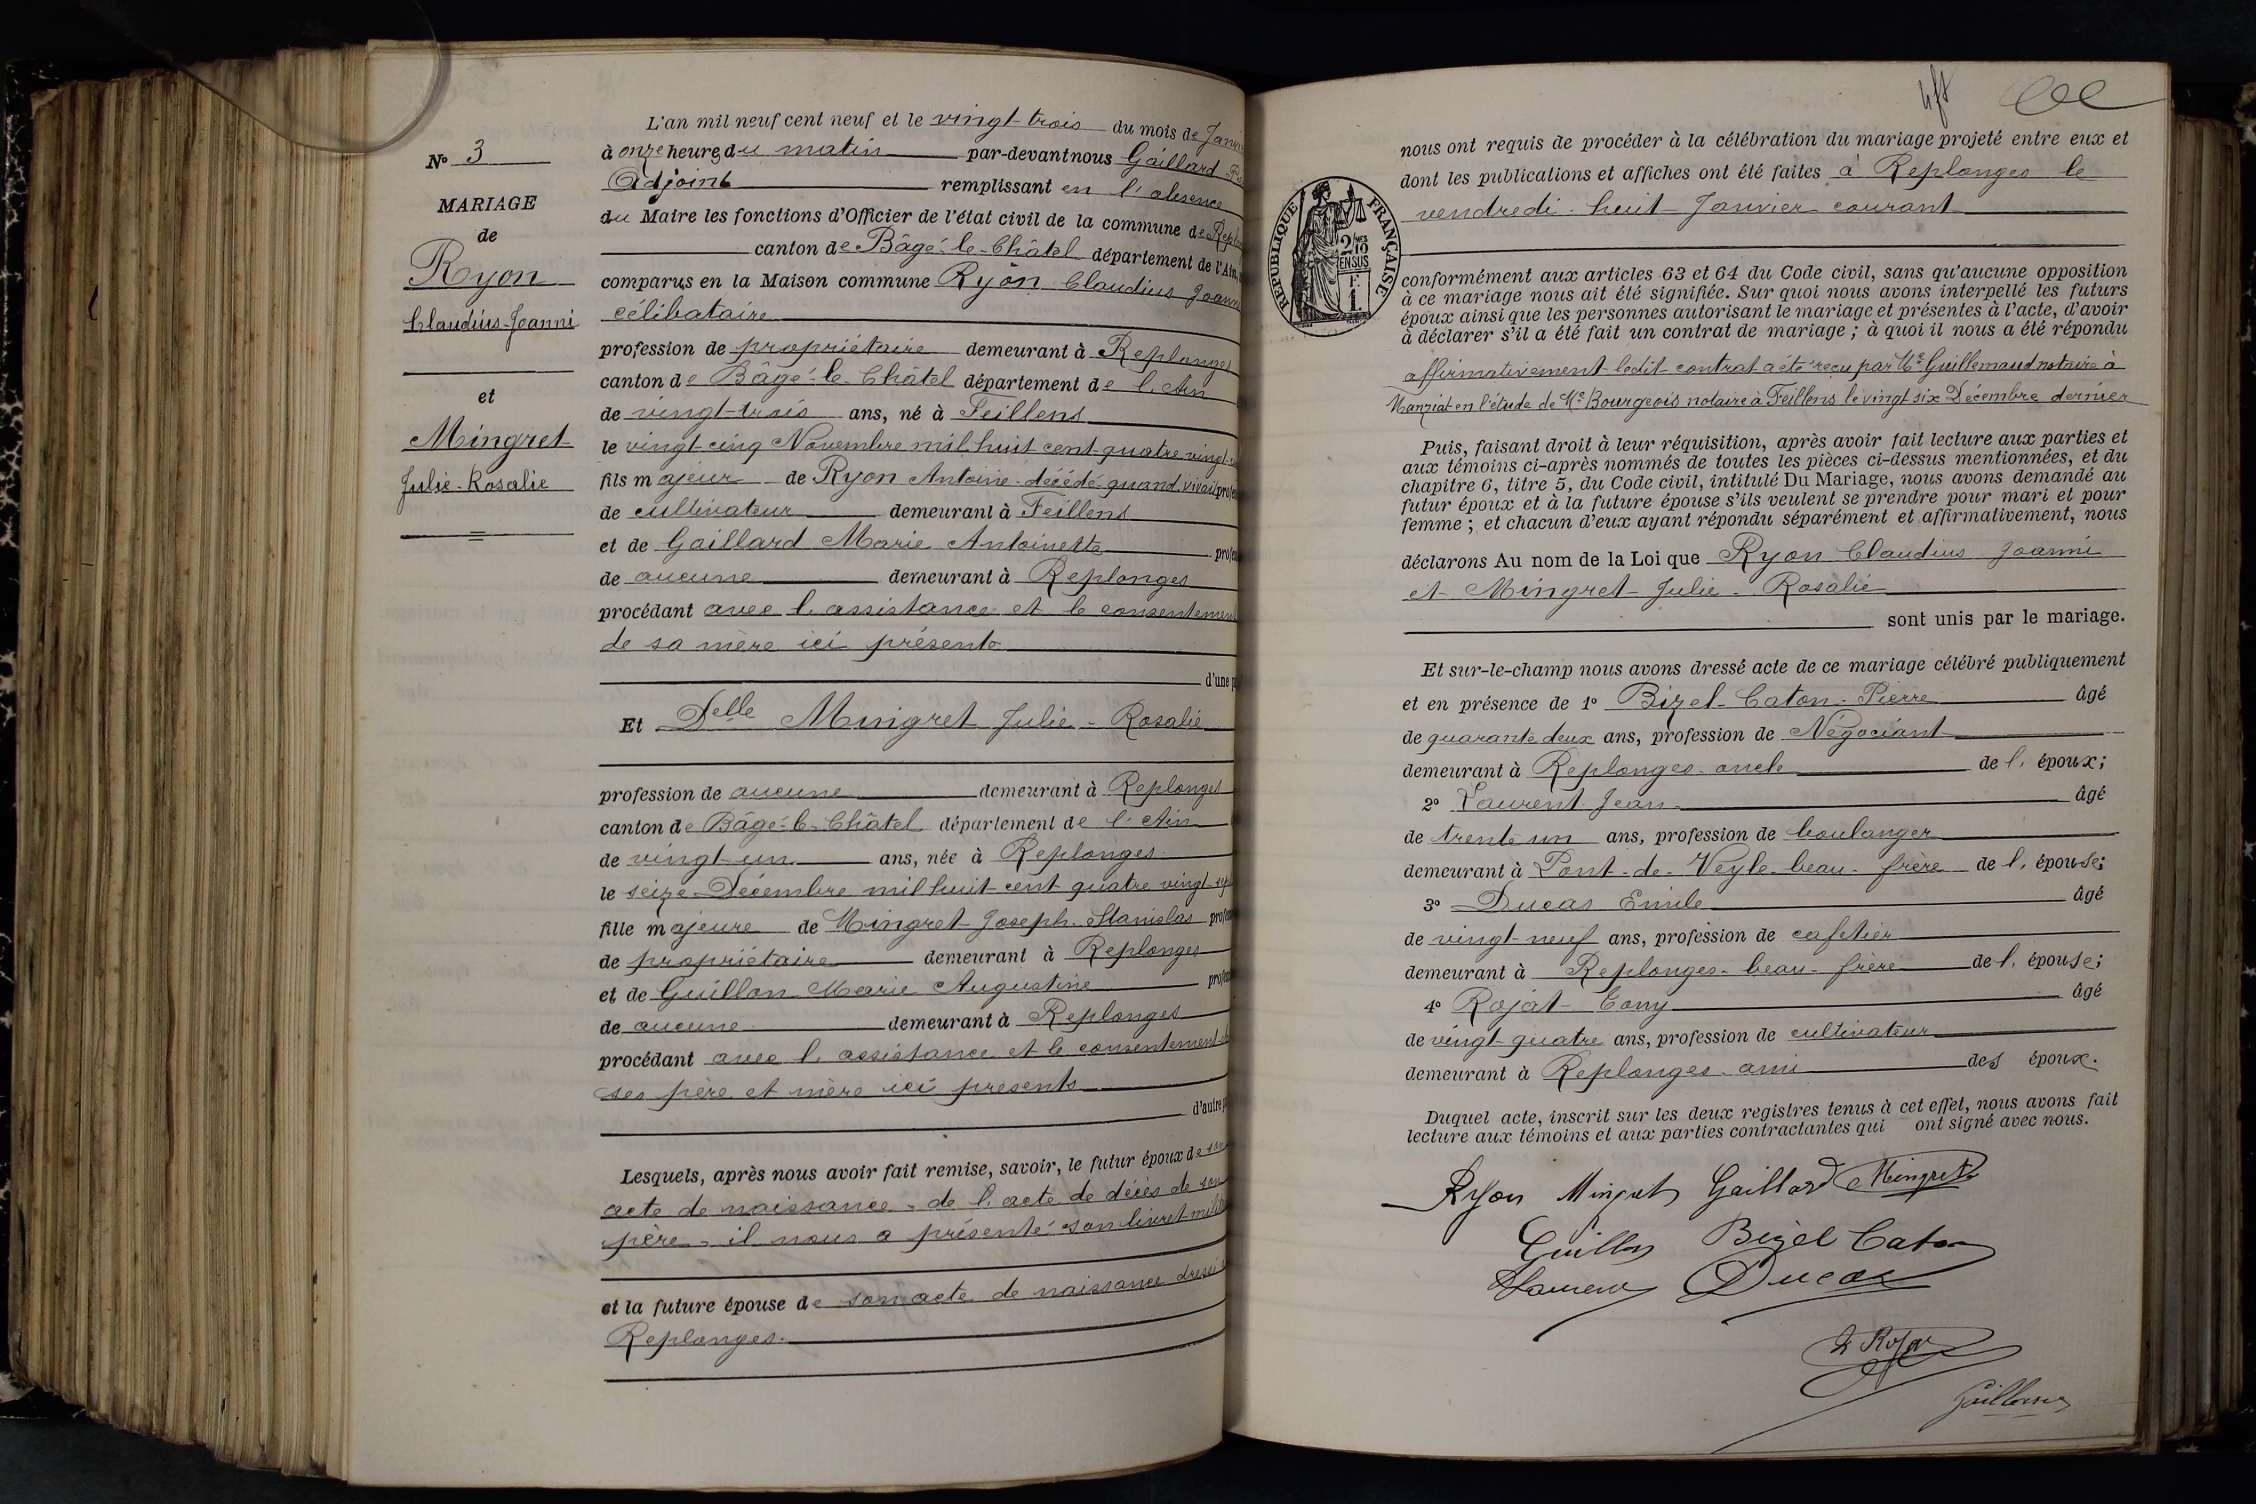 N° 3
MARIAGE
de
Ryon
Claudius-Joanni
et
Mingret
Julie-Rosalie
L'an mil neuf cent neuf et le vingt-trois du mois de
à onze heures du matin par-devant nous Gaillard
Adjoint remplissant en l'absence
du Maire les fonctions d'Officier de l'état civil de la commune de
canton de Bâgé-le-Châtel département de l'Ain,
comparus en la Maison commune Ryon Claudius
célibataire
profession de propriétaire demeurant à Replonges
canton de Bâgé-le-Châtel département de l'Ain
de vingt-trois ans, né à Feillens
le vingt cinq Novembre mil huit cent quatre vingt
fils majeur de Ryon Antoine décédé quand vivait
de cultivateur demeurant à Feillens
et de Gaillard Marie Antoinette
de aucune demeurant à Replonges
procédant avec l'assistance et le consentement
de sa mère ici présente
d'une
Et Delle Mingret Julie-Rosalie
profession de aucune demeurant à Replonges
canton de Bâgé-le-Châtel département de l'Ain
de vingt-un ans, née à Replonges
le seize Décembre mil huit cent quatre vingt
fille majeure de Mingret Joseph-Stanislas
de propriétaire demeurant à Replonges
et de Guillon Marie Augustine
de aucune demeurant à Replonges
procédant avec l'assistance et le consentement
ses père et mère ici présents
d'autre
Lesquels, après nous avoir fait remise, savoir, le futur époux de son
acte de naissance - de l'acte de décès de son
père - il nous a présenté son livret
et la future épouse de son acte de naissance dressé
Replonges.
REPUBLIQUE FRANÇAISE
2/10
EN SUS
F.
1
nous ont requis de procéder à la célébration du mariage projeté entre eux et
dont les publications et affiches ont été faites à Replonges le
vendredi huit Janvier courant
conformément aux articles 63 et 64 du Code civil, sans qu'aucune opposition
à ce mariage nous ait été signifiée. Sur quoi nous avons interpellé les futurs
époux ainsi que les personnes autorisant le mariage et présentes à l'acte, d'avoir
à déclarer s'il a été fait un contrat de mariage ; à quoi il nous a été répondu
affirmativement ledit contrat a été reçu par Me Guillemaud notaire à
Manziat en l'étude de Me Bourgeois notaire à Feillens le vingt six Décembre dernier
Puis, faisant droit à leur réquisition, après avoir fait lecture aux parties et
aux témoins ci-après nommés de toutes les pièces ci-dessus mentionnées, et du
chapitre 6, titre 5, du Code civil, intitulé Du Mariage, nous avons demandé au
futur époux et à la future épouse s'ils veulent se prendre pour mari et pour
femme ; et chacun d'eux ayant répondu séparément et affirmativement, nous
déclarons Au nom de la Loi que Ryon Claudius Joanni
et Mingret Julie-Rosalie
sont unis par le mariage.
Et sur-le-champ nous avons dressé acte de ce mariage célébré publiquement
et en présence de 1° Bizel-Caton Pierre âgé
de quarante deux ans, profession de Négociant
demeurant à Replonges oncle de l'époux;
2° Laurent Jean âgé
de trente un ans, profession de boulanger
demeurant à Pont-de-Veyle beau-frère de l'épouse;
3° Ducas Emile âgé
de vingt-neuf ans, profession de cafetier
demeurant à Replonges beau-frère de l'épouse;
4° Rojat Tony âgé
de vingt-quatre ans, profession de cultivateur
demeurant à Replonges ami des époux.
Duquel acte, inscrit sur les deux registres tenus à cet effet, nous avons fait
lecture aux témoins et aux parties contractantes qui ont signé avec nous.
Ryon Mingret Gaillard Mingret
Guillon Bizel Caton
Laurent Ducas
Rojat
Gaillard